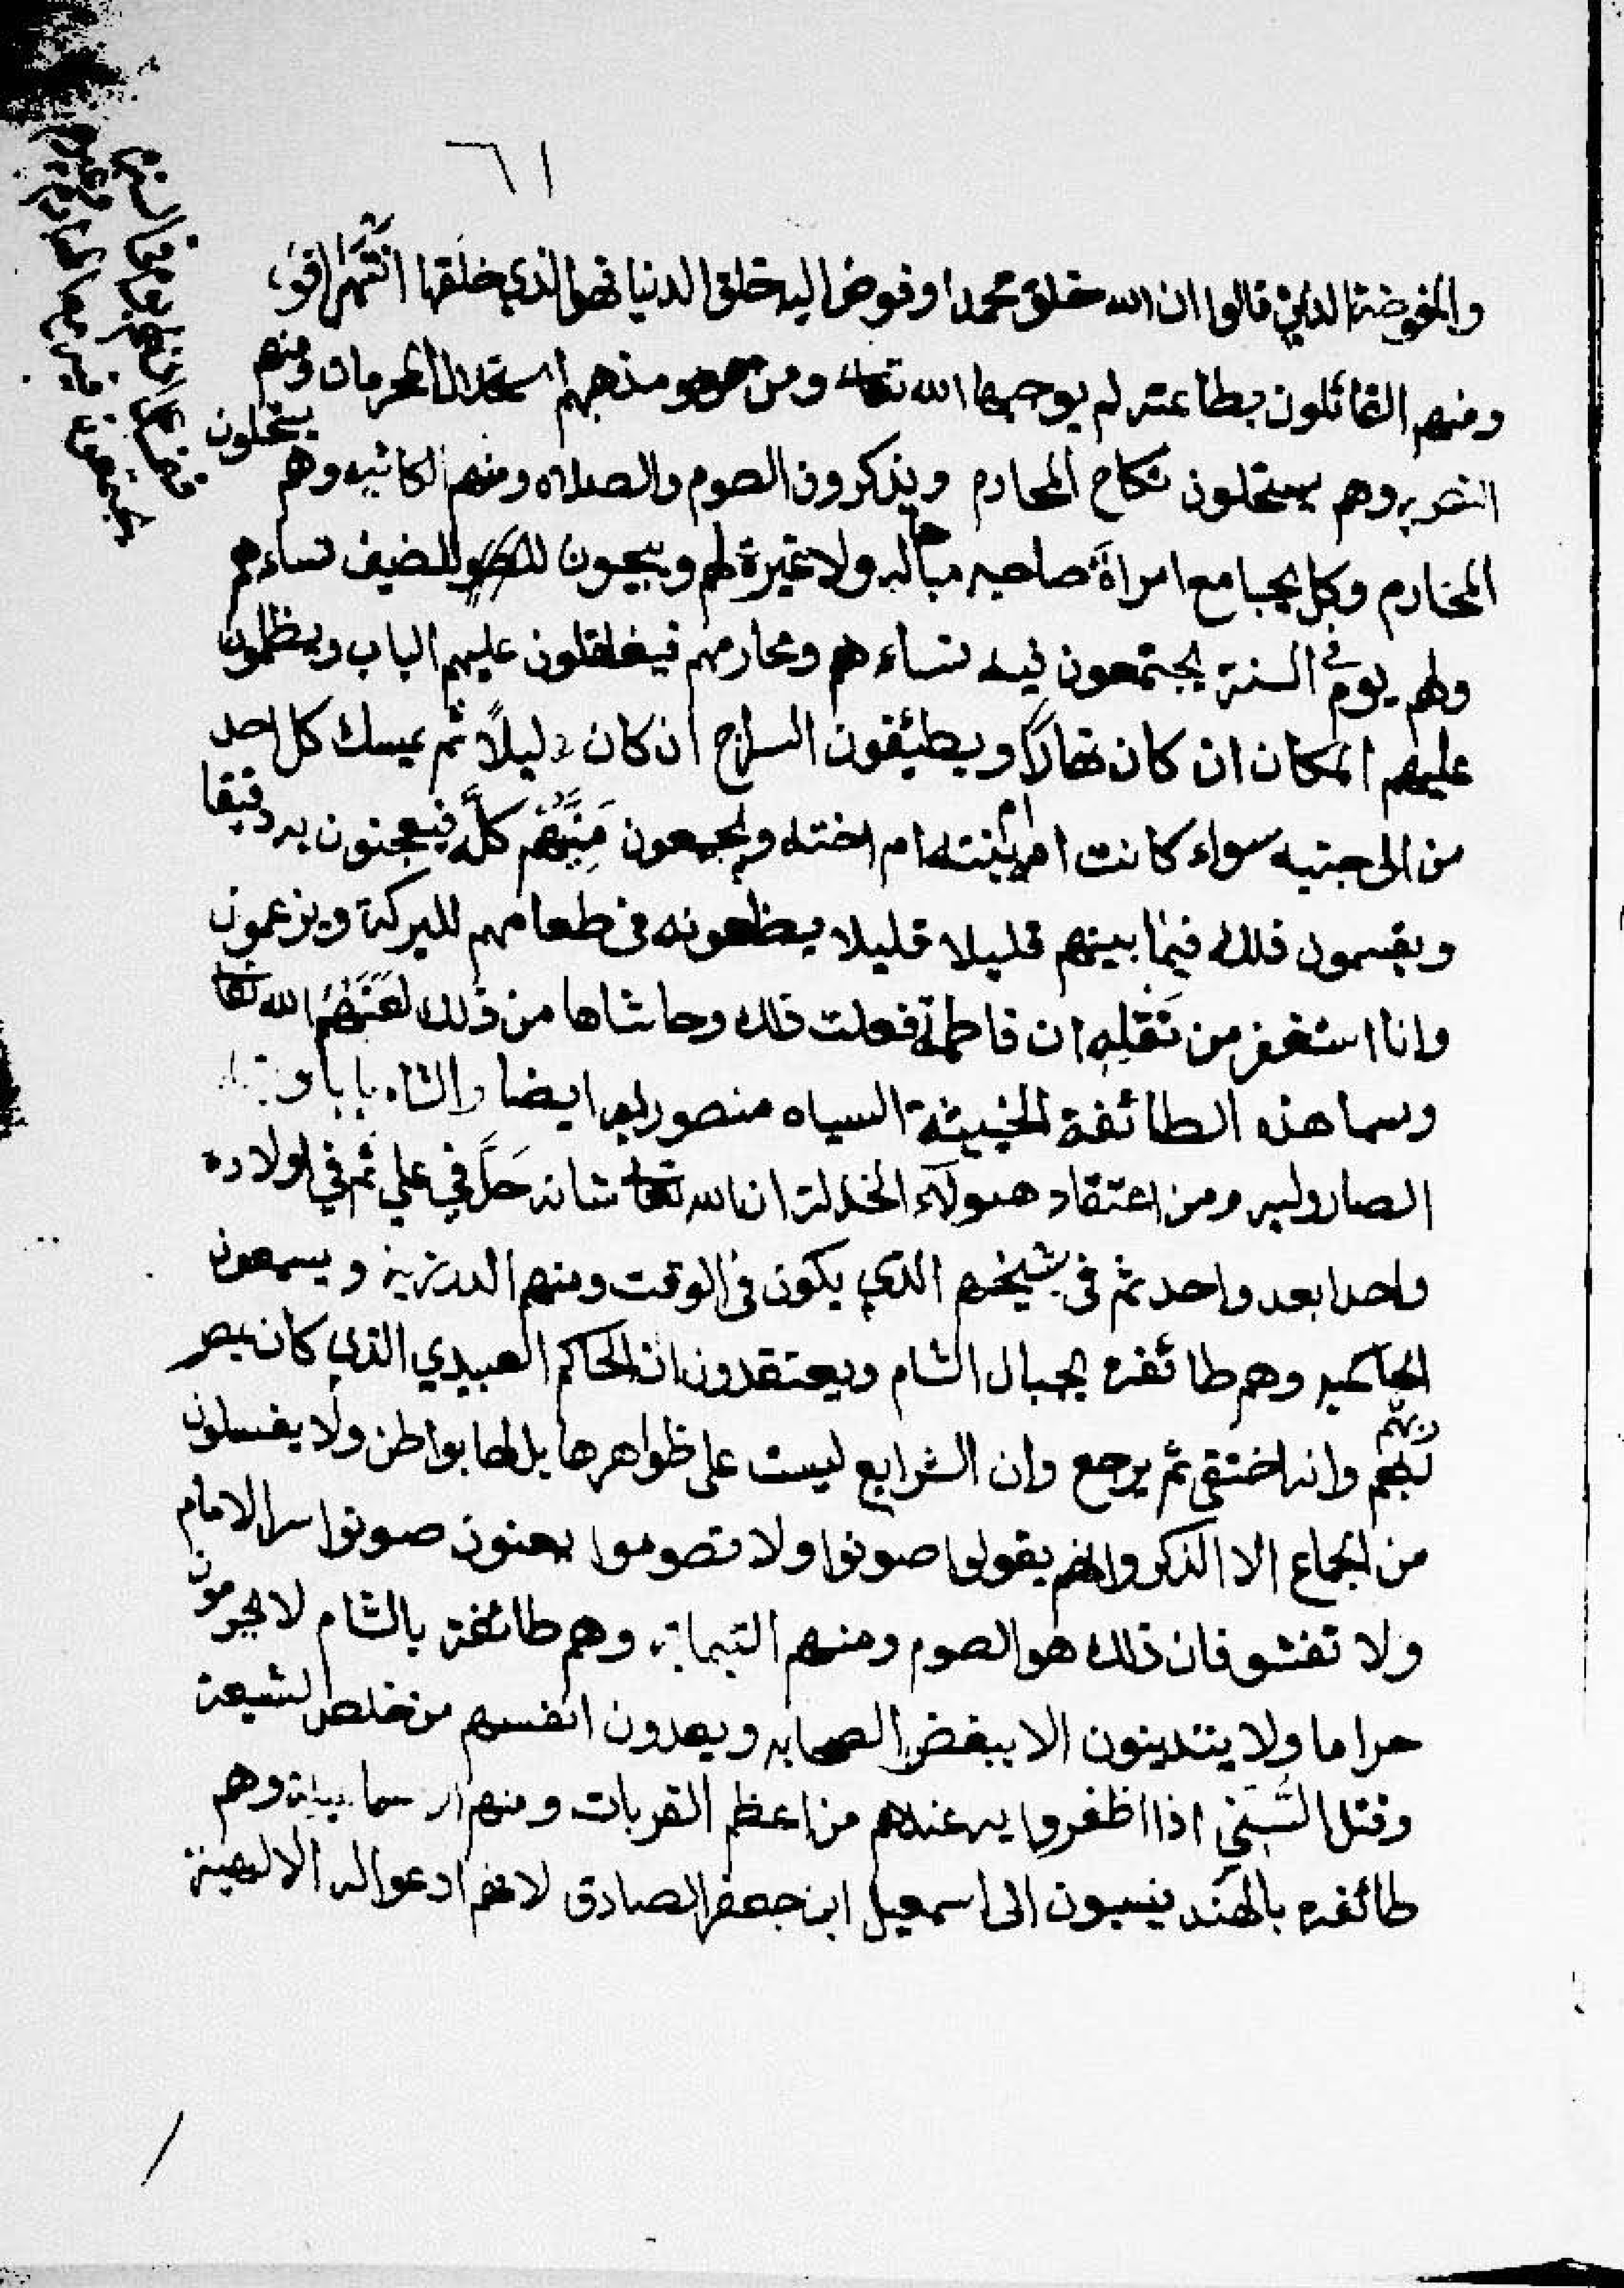 ٦١
والمفوضة الذين قالوا ان الله خلق محمدا وفوض اليه خلق الدنيا فهو الذي خلقها انتهى
ومنهم القائلون بطاعته لم يوجبها الله تعالى ومن مذهبهم استحلال المحرمات ومنهم
وهم يستحلون نكاح المحارم وينكرون الصوم والصلاه ومنهم وهم يستحلون
المحارم وكل يجامع امراة صاحبه ولا غيرة لهم ويبيحون للضيف نساءهم
ولهم يوم في السنة يجتمعون فيه نساءهم ومحارمهم فيغلقلون عليهم الباب ويظلمون
عليهم المكان ان كان نهارًا ويطيئفون السراج ان كان ليلاً ثم يمسك كل احد
من الى جنبه سواء كانت امه ام بنته ام اخته ويجمعون مَنِيَّهُم كلَّه فيعجنون به دقيقا
ويقسمون ذلك فيما بينهم قليلا قليلا يضعونه في طعامهم للبركة ويزعمون
وانا استغفر من نَقلِه ان فاطمة فعلت ذلك وحاشاها من ذلك لعَنَهُم الله تعالى
وسما هذه الطائفة الخبيثة السياه منصوريه ايضا والشاه بابا
الصارولیه ومن اعتقاد هولآء الخذلة ان الله تعالى شانه حَلَّ في علي ثم في اولاده
واحدا بعد واحد ثم في شيخهم الذي يكون في الوقت ومنهم الدرزية ويسمعون
الحاكميه وهم طائفه بجبال الشام ويعتقدون ان الحاكم العبيدي الذي كان بمصر
ربهم وانه اختفى ثم يرجع وان الشرايع ليست على ظواهرها بل لها بواطن ولا يغسلون
من الجماع الا الذكر وانهم يقولوا صونوا ولا تصوموا يعنون صونوا سر الامام
ولا تفشو فان ذلك هو الصوم ومنهم التيمانه وهم طائفة بالشام لا يحرمون
حراما ولا يتدينون الا ببغض الصحابه ويعدون انفسهم من خلص الشيعة
وقتل السُّنّي اذا اظفروا به عندهم من اعظم القربات ومنهم وهم
طائفه بالهند ينسبون الى اسمعيل ابن جعفر الصادق لانهم ادعوا له الالهية